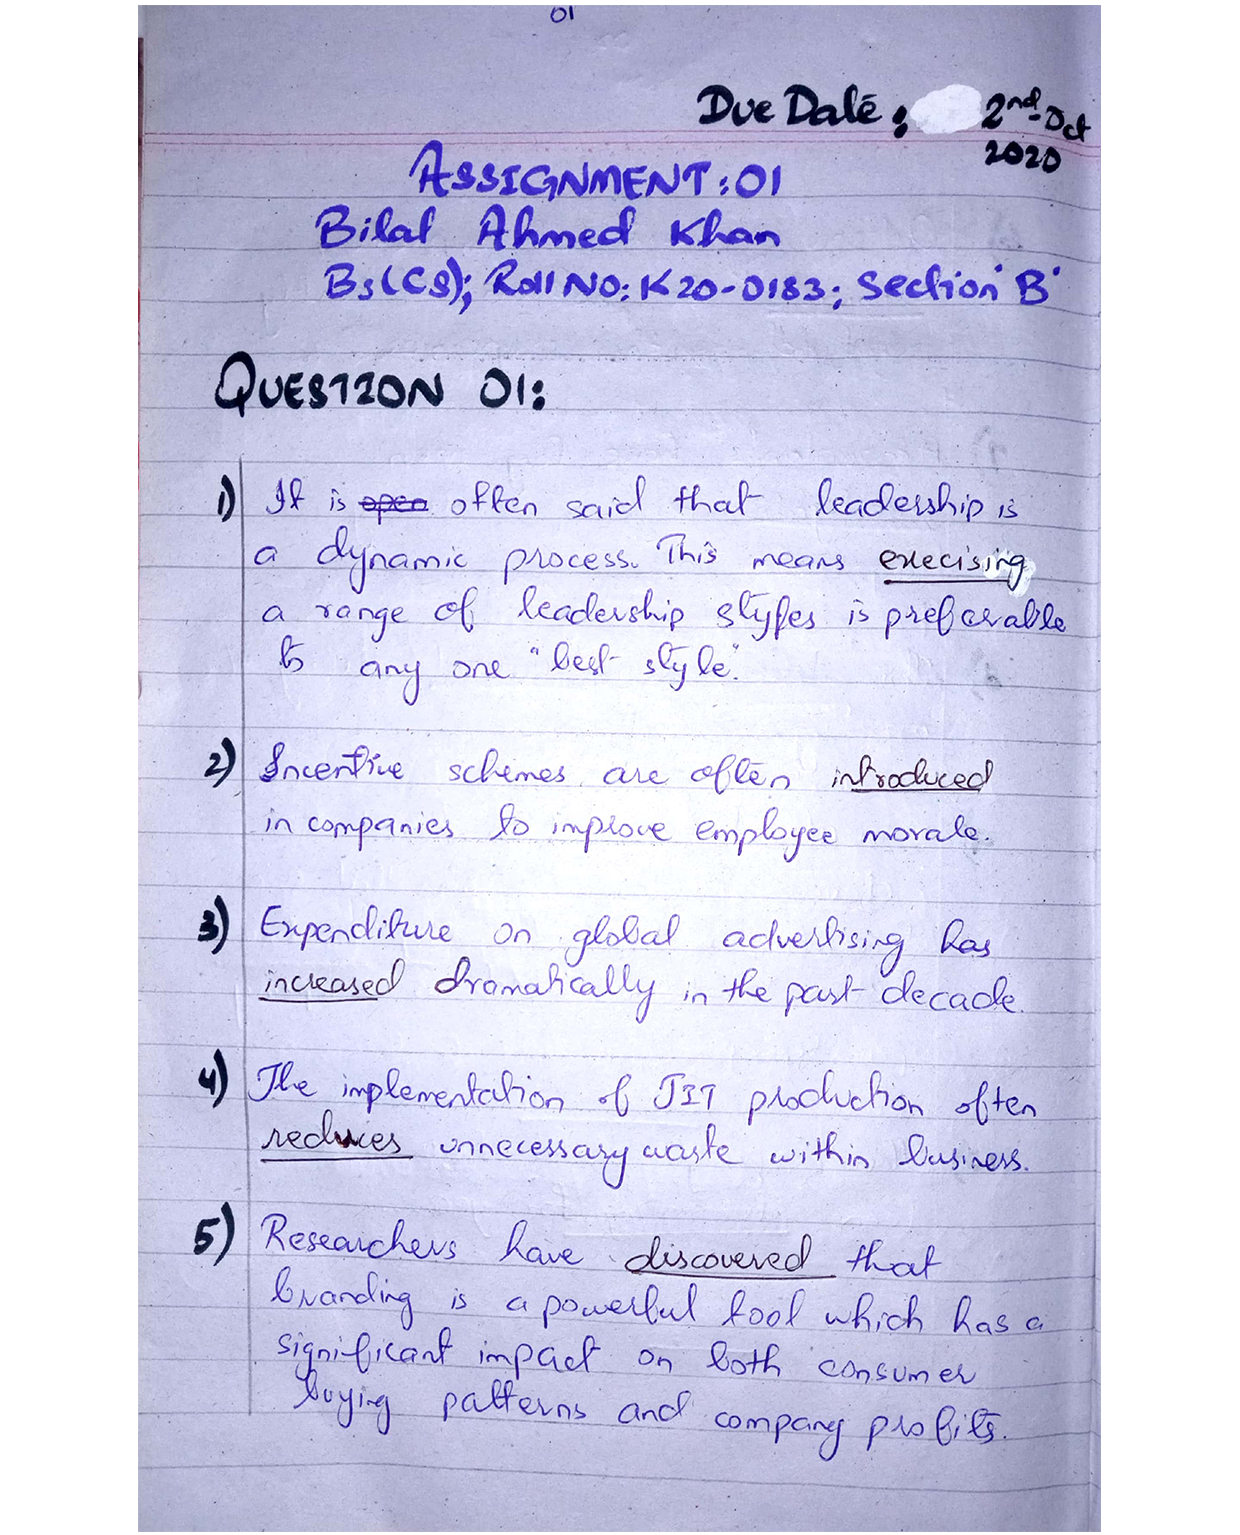 01
Due Date: 2nd-Oct
2020
ASSIGNMENT:01
Bilal Ahmed Khan
Bs(CS); Roll NO: K20-0183; Section 'B'
QUESTION 01:
1) It is open often said that leadership is
a dynamic process. This means execising
a range of leadership styles is preferable
to any one "best style".
2) Incentive schemes are often introduced
in companies to improve employee morale.
3) Expenditure on global advertising has
increased dramatically in the past decade.
4) The implementation of JIT production often
reduces unnecessary waste within business.
5) Researchers have discovered that
branding is a powerful tool which has a
significant impact on both consumer
buying patterns and company profits.